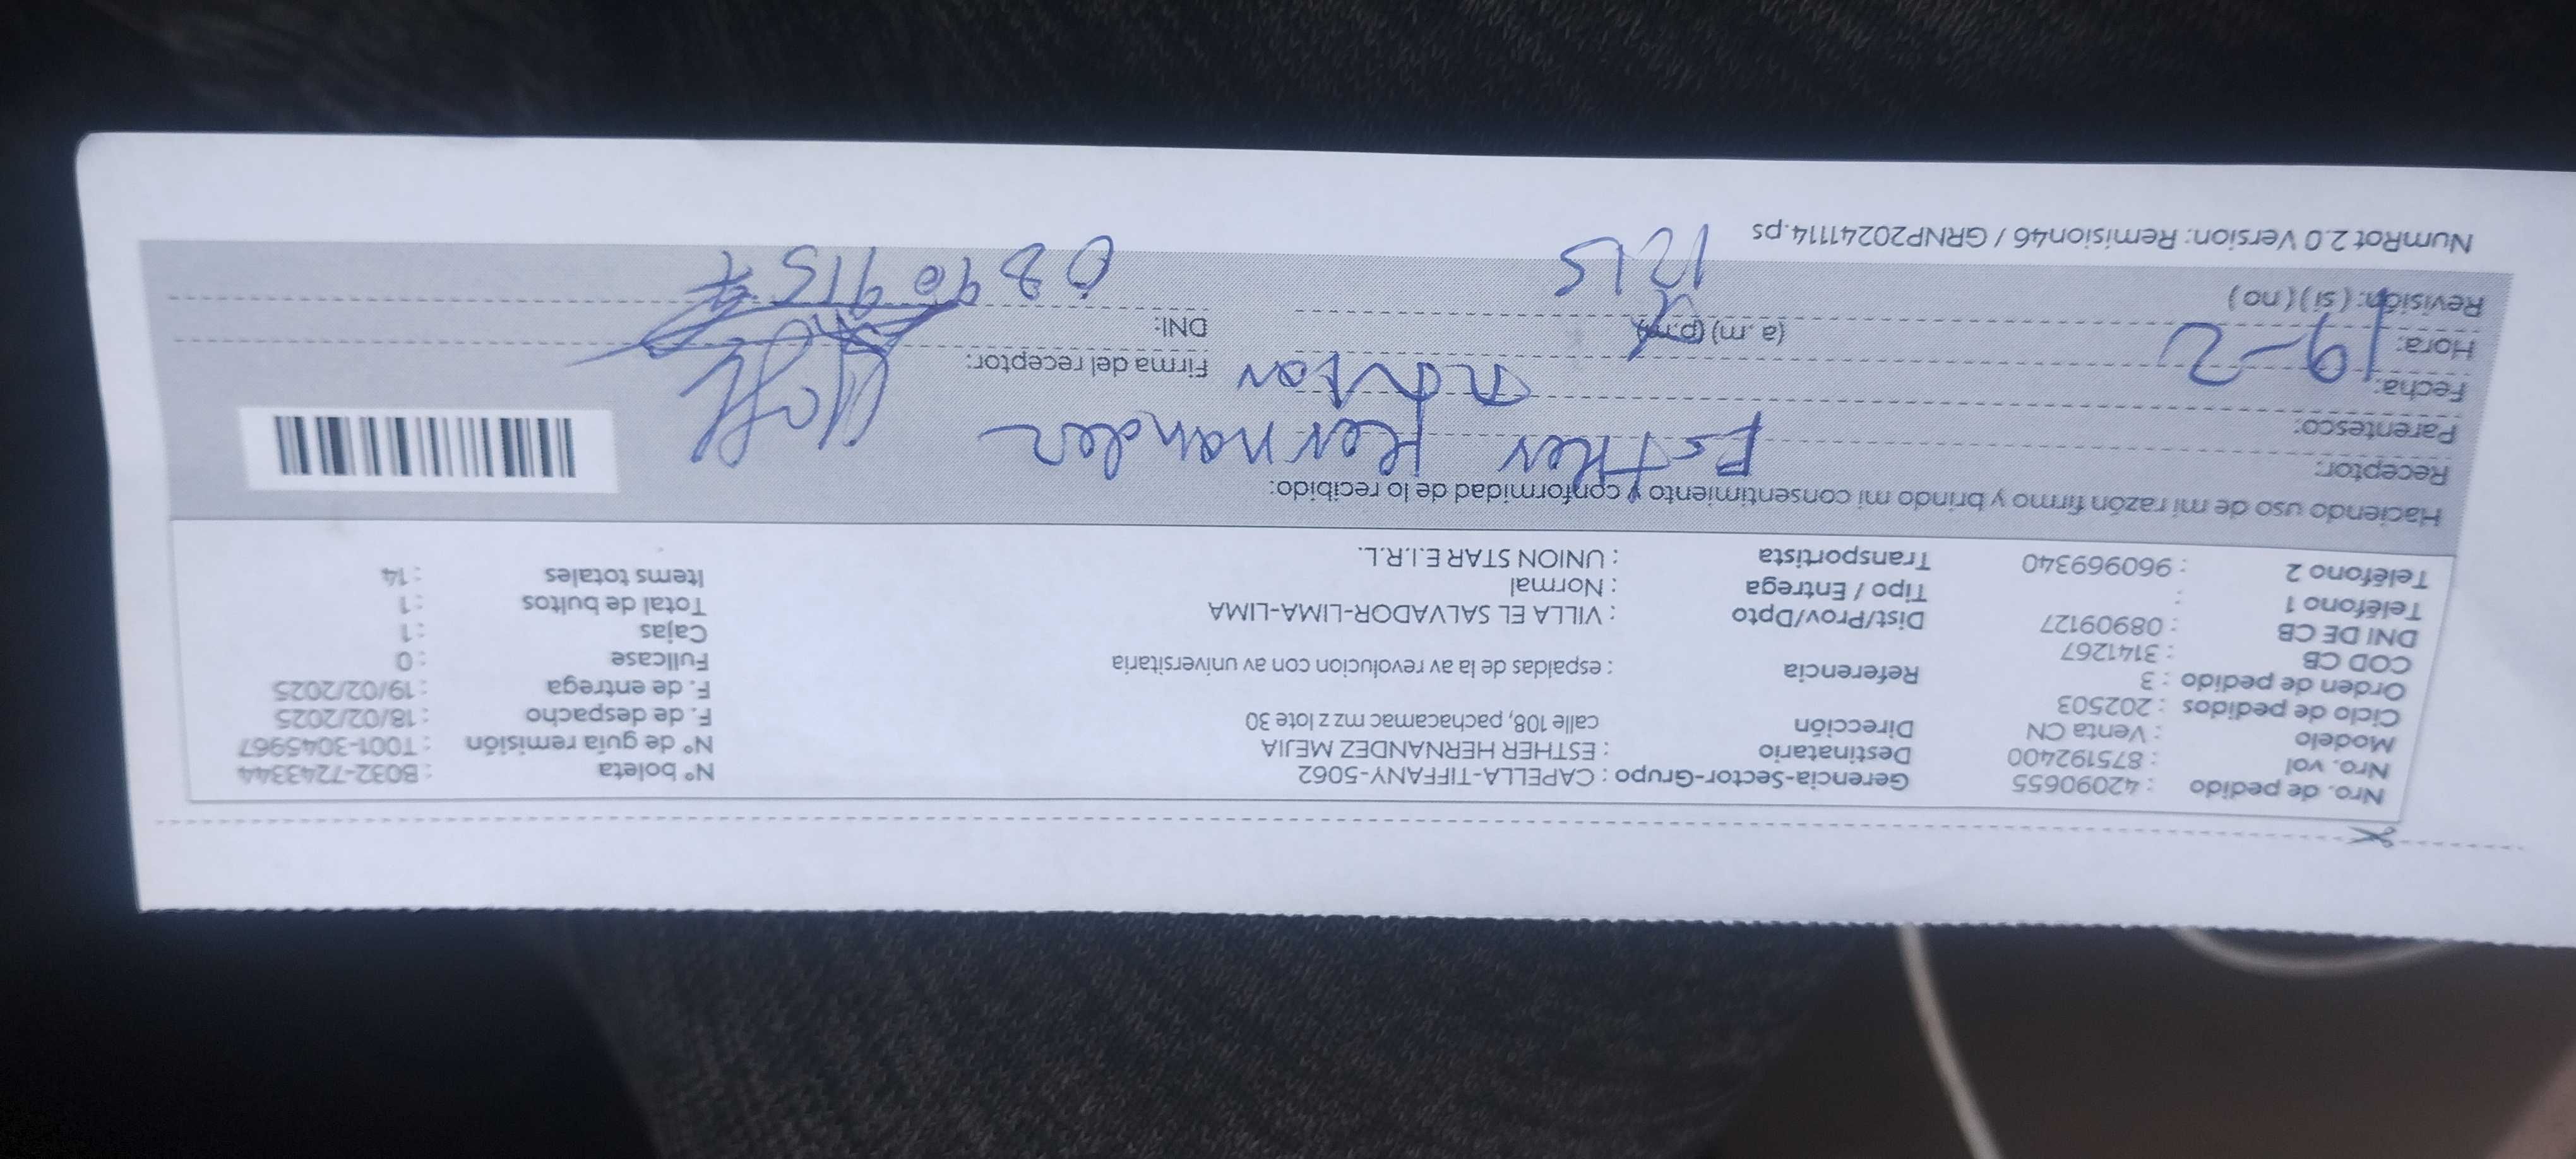 Nro. de pedido : 42090655 Gerencia-Sector-Grupo : CAPELLA-TIFFANY-5062 N° boleta : B032-7243344
Nro. vol : 875192400 Destinatario : ESTHER HERNANDEZ MEJIA N° de guía remisión : T001-3045967
Modelo : Venta CN Dirección calle 108, pachacamac mz z lote 30 F. de despacho : 18/02/2025
Ciclo de pedidos : 202503 F. de entrega : 19/02/2025
Orden de pedido : 3 Referencia : espaldas de la av revolucion con av universitaria Fullcase : 0
COD CB : 3141267 Cajas : 1
DNI DE CB : 08909127 Dist/Prov/Dpto : VILLA EL SALVADOR-LIMA-LIMA Total de bultos : 1
Teléfono 1 : Tipo / Entrega : Normal Items totales : 14
Teléfono 2 : 960969340 Transportista : UNION STAR E.I.R.L.
Haciendo uso de mi razón firmo y brindo mi consentimiento y conformidad de lo recibido:
Receptor: Esther Hernandez
Parentesco:
Fecha: 19-2 Firma del receptor:
Hora: (a.m) (p.m) DNI:
Revisión: ( si ) ( no ) 1215
NumRot 2.0 Version: Remision46 / GRNP20241114.ps